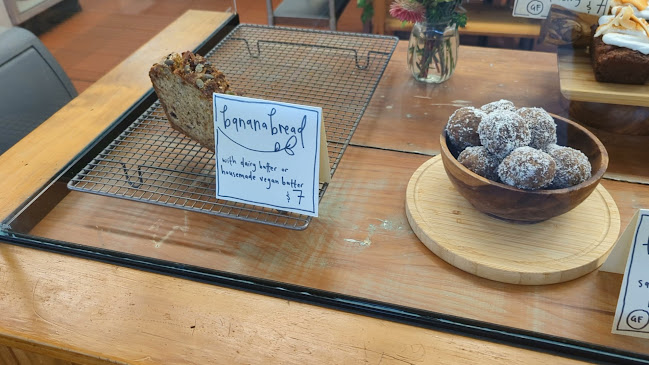 $7
GF
bananabread
with dairy butter or
housemade vegan butter
$7
GF